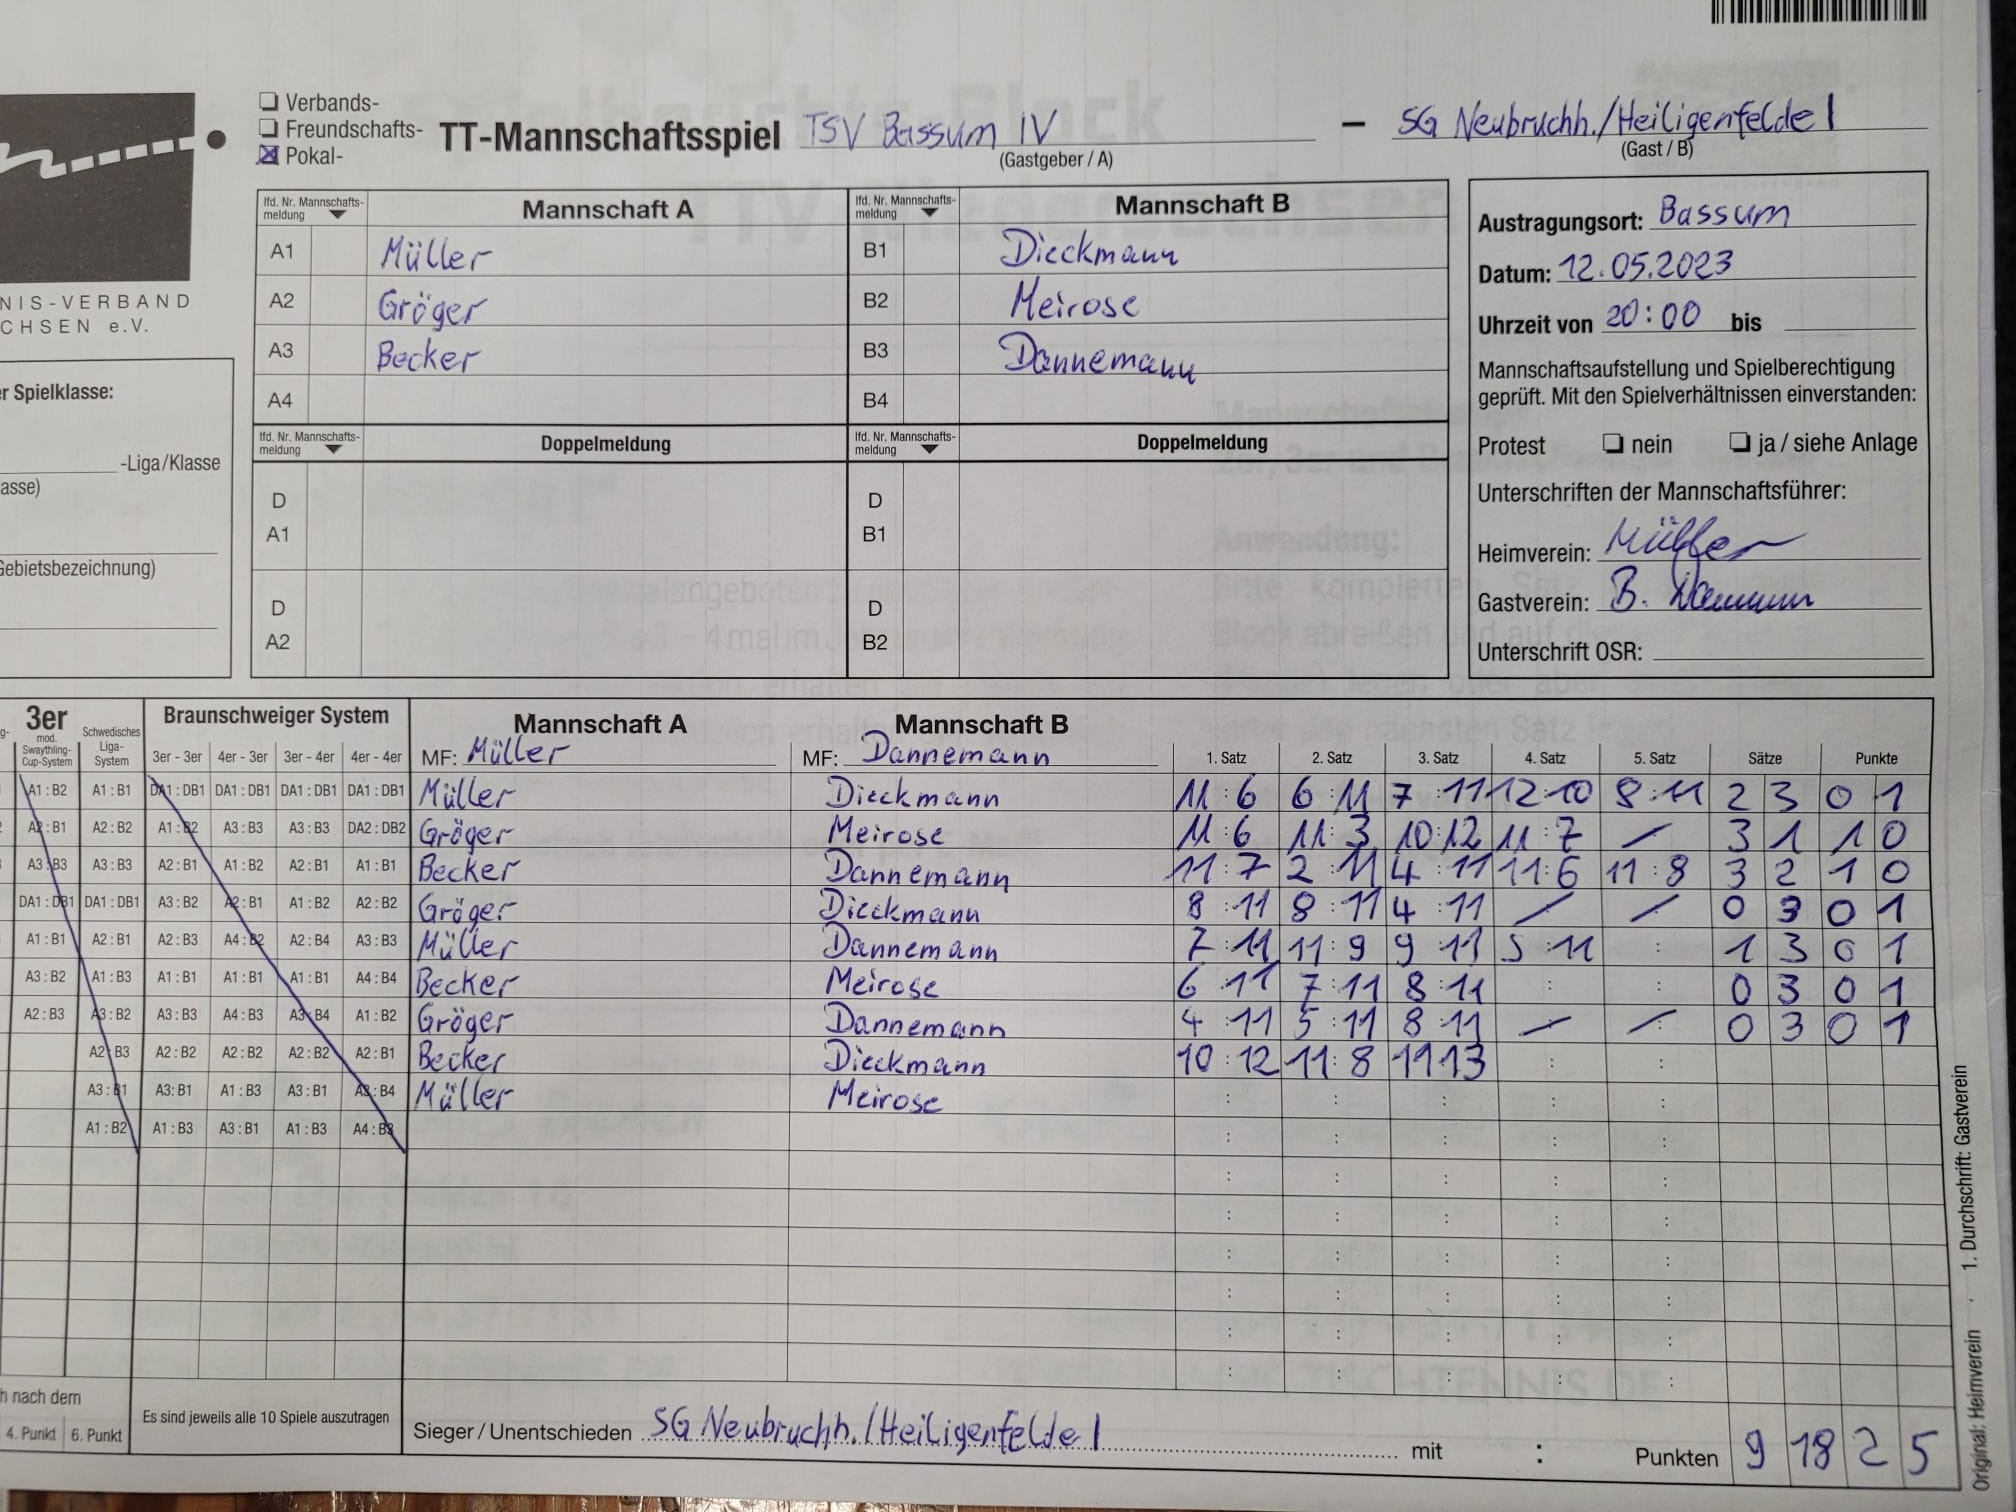 ❏ Verbands-
❏ Freundschafts-
☒ Pokal-
TT-Mannschaftsspiel TSV Bassum IV – SG Neubruchh./Heiligenfelde I
(Gastgeber / A) (Gast / B)
NIS-VERBAND
CHSEN e.V.
r Spielklasse:
-Liga/Klasse
asse)
Gebietsbezeichnung)
lfd. Nr. Mannschafts-meldung Mannschaft A lfd. Nr. Mannschafts-meldung Mannschaft B
A1 Müller B1 Dieckmann
A2 Gröger B2 Meirose
A3 Becker B3 Dannemann
A4 B4
lfd. Nr. Mannschafts-meldung Doppelmeldung lfd. Nr. Mannschafts-meldung Doppelmeldung
D D
A1 B1
D D
A2 B2
Austragungsort: Bassum
Datum: 12.05.2023
Uhrzeit von 20:00 bis
Mannschaftsaufstellung und Spielberechtigung
geprüft. Mit den Spielverhältnissen einverstanden:
Protest ❏ nein ❏ ja / siehe Anlage
Unterschriften der Mannschaftsführer:
Heimverein: Müller
Gastverein: B.
Unterschrift OSR:
3er Braunschweiger System Mannschaft A Mannschaft B
mod. Swaythling-Cup-System Schwedisches Liga-System 3er - 3er 4er - 3er 3er - 4er 4er - 4er MF: Müller MF: Dannemann 1. Satz 2. Satz 3. Satz 4. Satz 5. Satz Sätze Punkte
A1 : B2 A1 : B1 DA1 : DB1 DA1 : DB1 DA1 : DB1 DA1 : DB1 Müller Dieckmann 11 : 6 6 : 11 7 : 11 12 10 8 : 11 2 3 0 1
A2 : B1 A2 : B2 A1 : B2 A3 : B3 A3 : B3 DA2 : DB2 Gröger Meirose 11 : 6 11 : 3 10 : 12 11 : 7 3 1 1 0
A3 : B3 A3 : B3 A2 : B1 A1 : B2 A2 : B1 A1 : B1 Becker Dannemann 11 : 7 2 : 11 4 : 11 11 : 6 11 : 8 3 2 1 0
DA1 : DB1 DA1 : DB1 A3 : B2 A2 : B1 A1 : B2 A2 : B2 Gröger Dieckmann 8 : 11 8 : 11 4 : 11 0 3 0 1
A1 : B1 A2 : B1 A2 : B3 A4 : B2 A2 : B4 A3 : B3 Müller Dannemann 7 : 11 11 : 9 9 : 11 5 : 11 : 1 3 0 1
A3 : B2 A1 : B3 A1 : B1 A1 : B1 A1 : B1 A4 : B4 Becker Meirose 6 : 11 7 : 11 8 : 11 : : 0 3 0 1
A2 : B3 A3 : B2 A3 : B3 A4 : B3 A3 : B4 A1 : B2 Gröger Dannemann 4 : 11 5 : 11 8 : 11 0 3 0 1
A2 : B3 A2 : B2 A2 : B2 A2 : B2 A2 : B1 Becker Dieckmann 10 : 12 11 : 8 11 13 : :
A3 : B1 A3 : B1 A1 : B3 A3 : B1 A3 : B4 Müller Meirose : : : : :
A1 : B2 A1 : B3 A3 : B1 A1 : B3 A4 : B3 : : : : :
h nach dem
4. Punkt 6. Punkt
Es sind jeweils alle 10 Spiele auszutragen
Sieger / Unentschieden SG Neubruchh./Heiligenfelde I mit : Punkten 9 18 2 5
Original: Heimverein · 1. Durchschrift: Gastverein